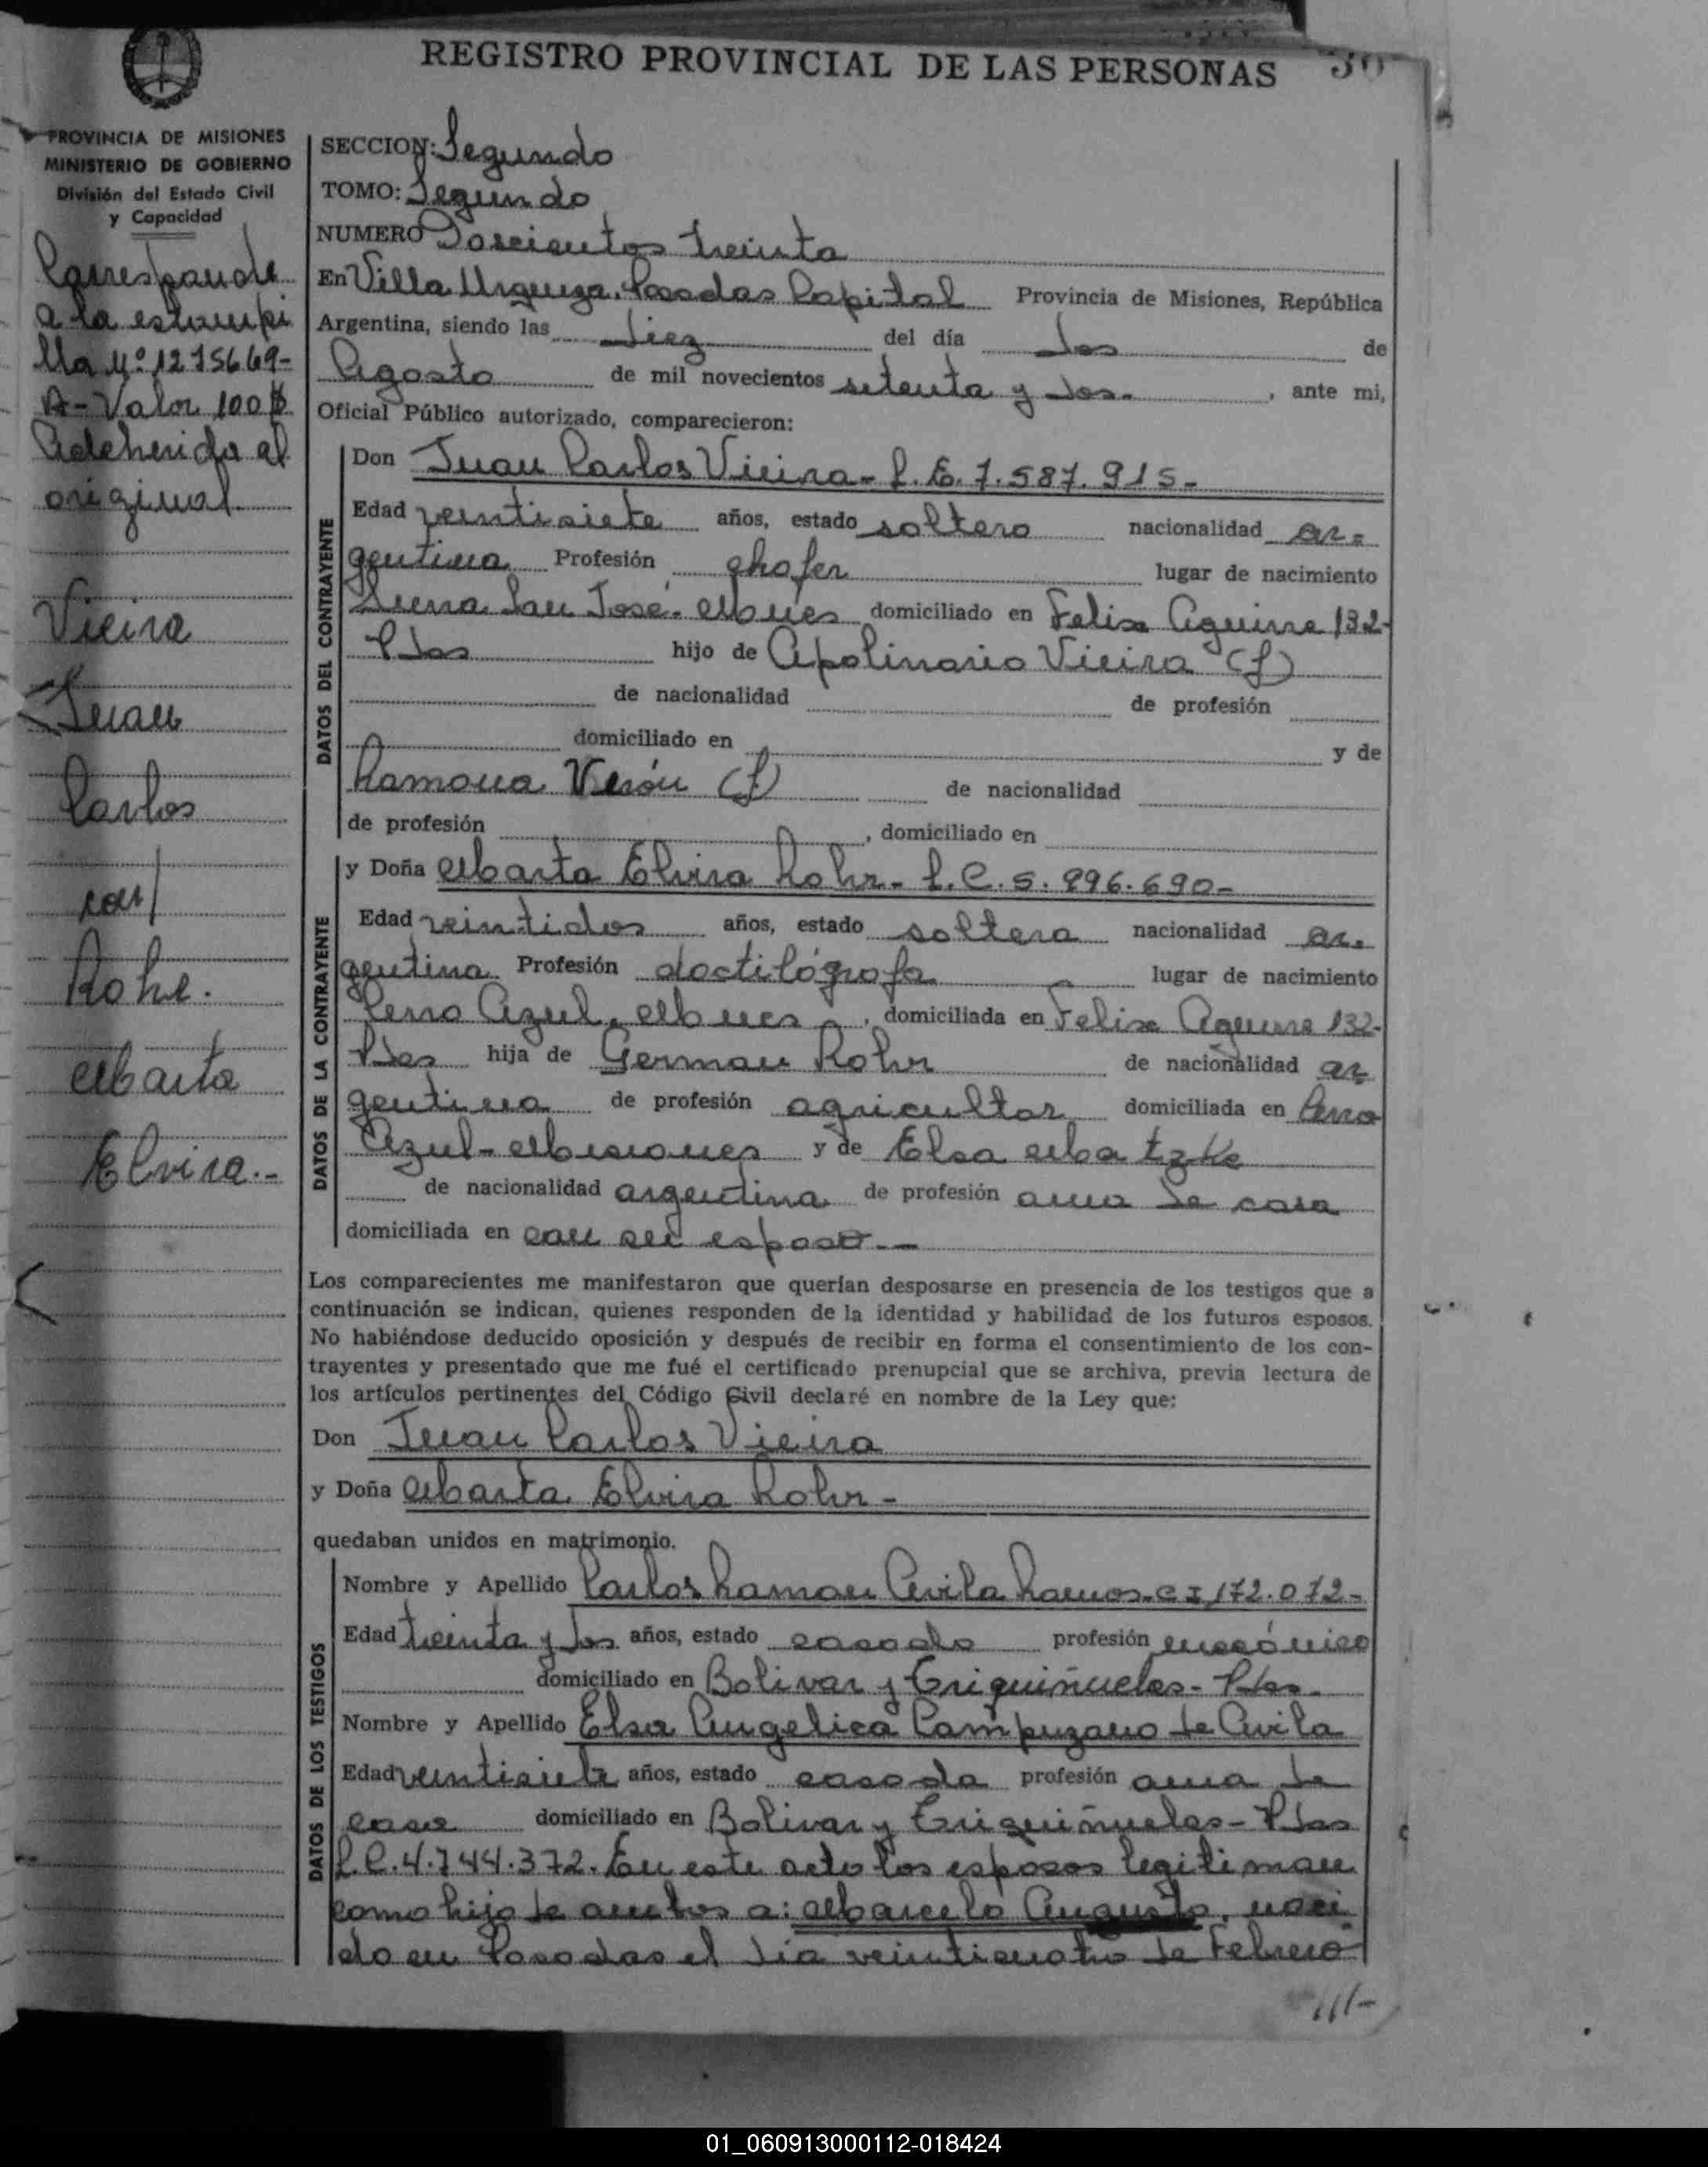 REGISTRO PROVINCIAL DE LAS PERSONAS
PROVINCIA DE MISIONES
MINISTERIO DE GOBIERNO
División del Estado Civil
y Capacidad
Corresponde
a la estampi
lla Nº 1275669-
A- Valor 100 $
Adeherida al
original.
Vieira
Juan
Carlos
con/
Rohr.
Marta
Elvira.-
SECCION: Segundo
TOMO: Segundo
NUMERO Doscientos treinta
En Villa Urquiza, Posadas Capital Provincia de Misiones, República
Argentina, siendo las diez del día dos de
Agosto de mil novecientos setenta y dos. , ante mi,
Oficial Público autorizado, comparecieron:
DATOS DEL CONTRAYENTE
Don Juan Carlos Vieira- L.E. 7.587.915-
Edad veintisiete años, estado soltero nacionalidad ar-
gentina Profesión chofer lugar de nacimiento
San José- Mnes domiciliado en Felix Aguirre 132-
Pdas hijo de Apolinario Vieira (f)
de nacionalidad de profesión
domiciliado en y de
Ramona Verón (f) de nacionalidad
de profesión , domiciliado en
DATOS DE LA CONTRAYENTE
y Doña Marta Elvira Rohr- L.C. 5.996.690-
Edad veintidos años, estado soltera nacionalidad ar-
gentina Profesión dactilógrafa lugar de nacimiento
Cerro Azul, Mnes , domiciliada en Felix Aguirre 132-
Pdas hija de German Rohr de nacionalidad ar
gentina de profesión agricultor domiciliada en Cerro
Azul- Misiones y de Elsa Matzke
de nacionalidad argentina de profesión ama de casa
domiciliada en con su esposo.-
Los comparecientes me manifestaron que querían desposarse en presencia de los testigos que a
continuación se indican, quienes responden de la identidad y habilidad de los futuros esposos.
No habiéndose deducido oposición y después de recibir en forma el consentimiento de los con-
trayentes y presentado que me fué el certificado prenupcial que se archiva, previa lectura de
los artículos pertinentes del Código Civil declaré en nombre de la Ley que:
Don Juan Carlos Vieira
y Doña Marta Elvira Rohr-
quedaban unidos en matrimonio.
DATOS DE LOS TESTIGOS
Nombre y Apellido Carlos Ramon Avila Ramos- CI 172.072-
Edad treinta y dos años, estado casado profesión mecánico
domiciliado en Bolivar y Triquiñuelas- Pdas-
Nombre y Apellido Elsa Angelica Campuzano de Avila
Edad veintisiete años, estado casada profesión ama de
casa domiciliado en Bolivar y Triquiñuelas- Pdas
L.C. 4.744.372. En este acto los esposos legitiman
como hijo de ambos a: Marcelo Augusto, naci
do en Posadas el día veinticuatro de Febrero
///-
01_060913000112-018424